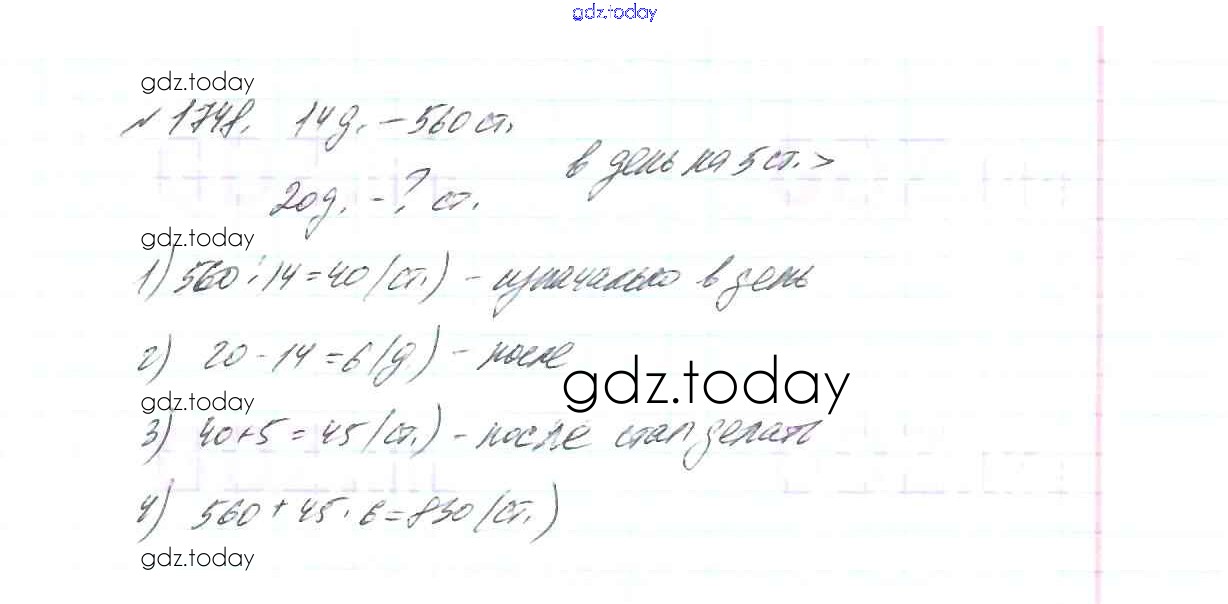 gdz.today
gdz.today
№ 1748. 14д. – 560 ст.
в день на 5 ст. >
20д. – ? ст.
gdz.today
1) 560 : 14 = 40 (ст.) – изначально в день
2) 20 – 14 = 6 (д.) – после
gdz.today
gdz.today
3) 40 + 5 = 45 (ст.) – после стал делать
4) 560 + 45 · 6 = 830 (ст.)
gdz.today